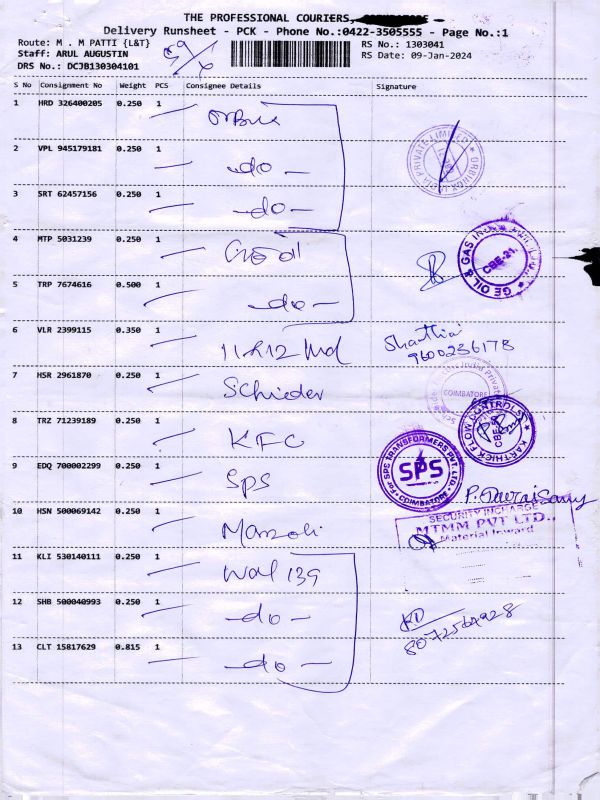 THE PROFESSIONAL COURIERS,
Delivery Runsheet - PCK - Phone No.:0422-3505555 - Page No.:1
Route: M . M PATTI {L&T}
RS No.: 1303041
Staff: ARUL AUGUSTIN
RS Date: 09-Jan-2024
DRS No.: DCJB130304101
S No Consignment No Weight PCS Consignee Details Signature
1 HRD 326400205 0.250 1
2 VPL 945179181 0.250 1 -do-
3 SRT 62457156 0.250 1 -do-
4 MTP 5031239 0.250 1
GE OIL & GAS IND
CBE-21.
5 TRP 7674616 0.500 1 -do-
6 VLR 2399115 0.350 1
9600236178
7 HSR 2961870 0.250 1
COIMBATORE
8 TRZ 71239189 0.250 1 KFC
KARTHICK FLOW CONTROLS
9 EDQ 700002299 0.250 1 SPS
For SPS TRANSFORMERS PVT. LTD.
SPS
COIMBATORE
10 HSN 500069142 0.250 1
SECURITY INCHARGE
MTMM PVT LTD.,
Material Inward
11 KLI 530140111 0.250 1 Wal 139
12 SHB 500040993 0.250 1 -do-
13 CLT 15817629 0.815 1 -do-